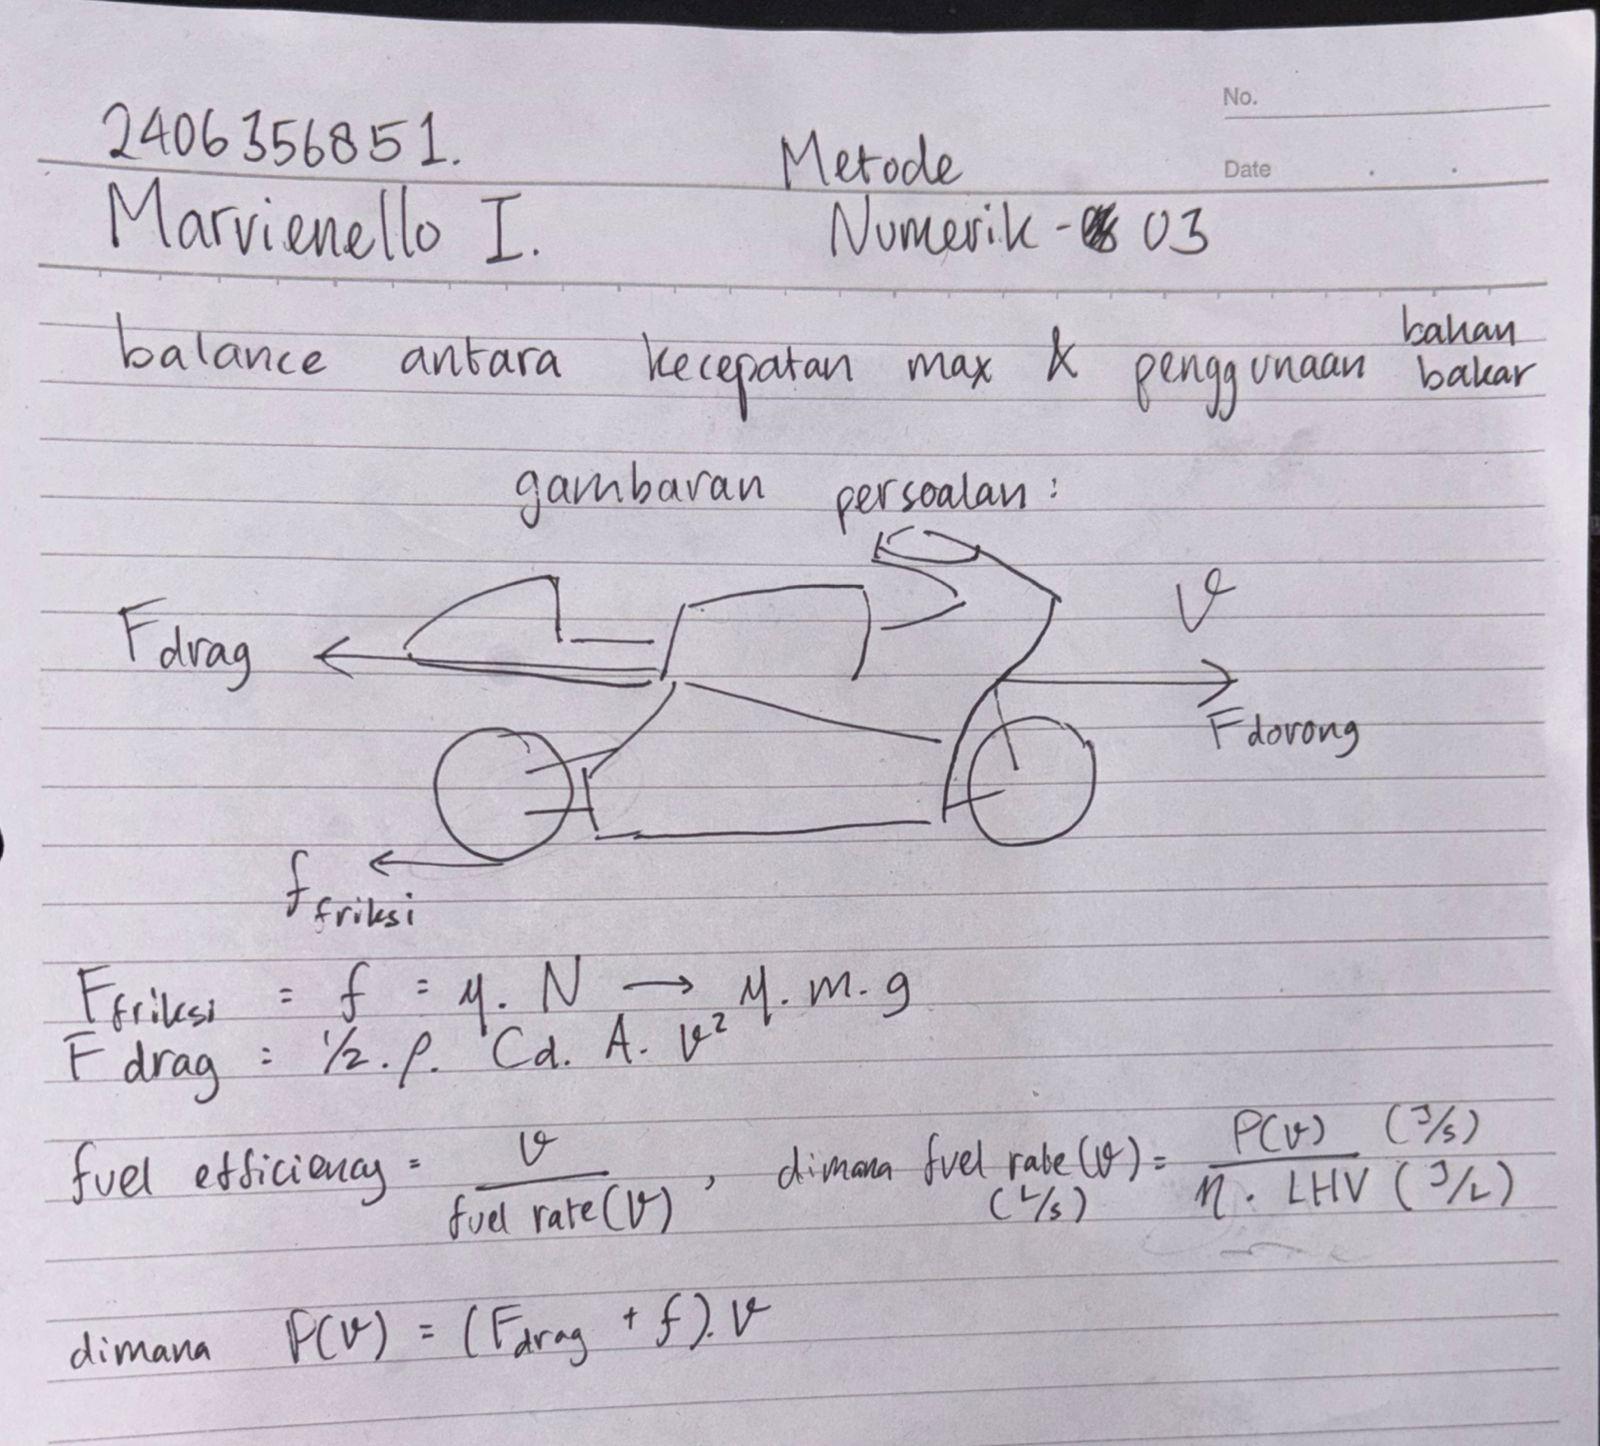 No.
2406356851.
Metode
Date
Marvienello I.
Numerik - 03
balance antara kecepatan max & penggunaan bahan bakar
gambaran persoalan :
F drag
v
F dorong
f friksi
F friksi = f = μ. N → μ. m. g
F drag = 1/2. ρ. Cd. A. v²
fuel efficiency = v / fuel rate (v) , dimana fuel rate (v) = P(v) (J/s) / η . LHV (J/L)
(L/s)
dimana P(v) = (F drag + f). v